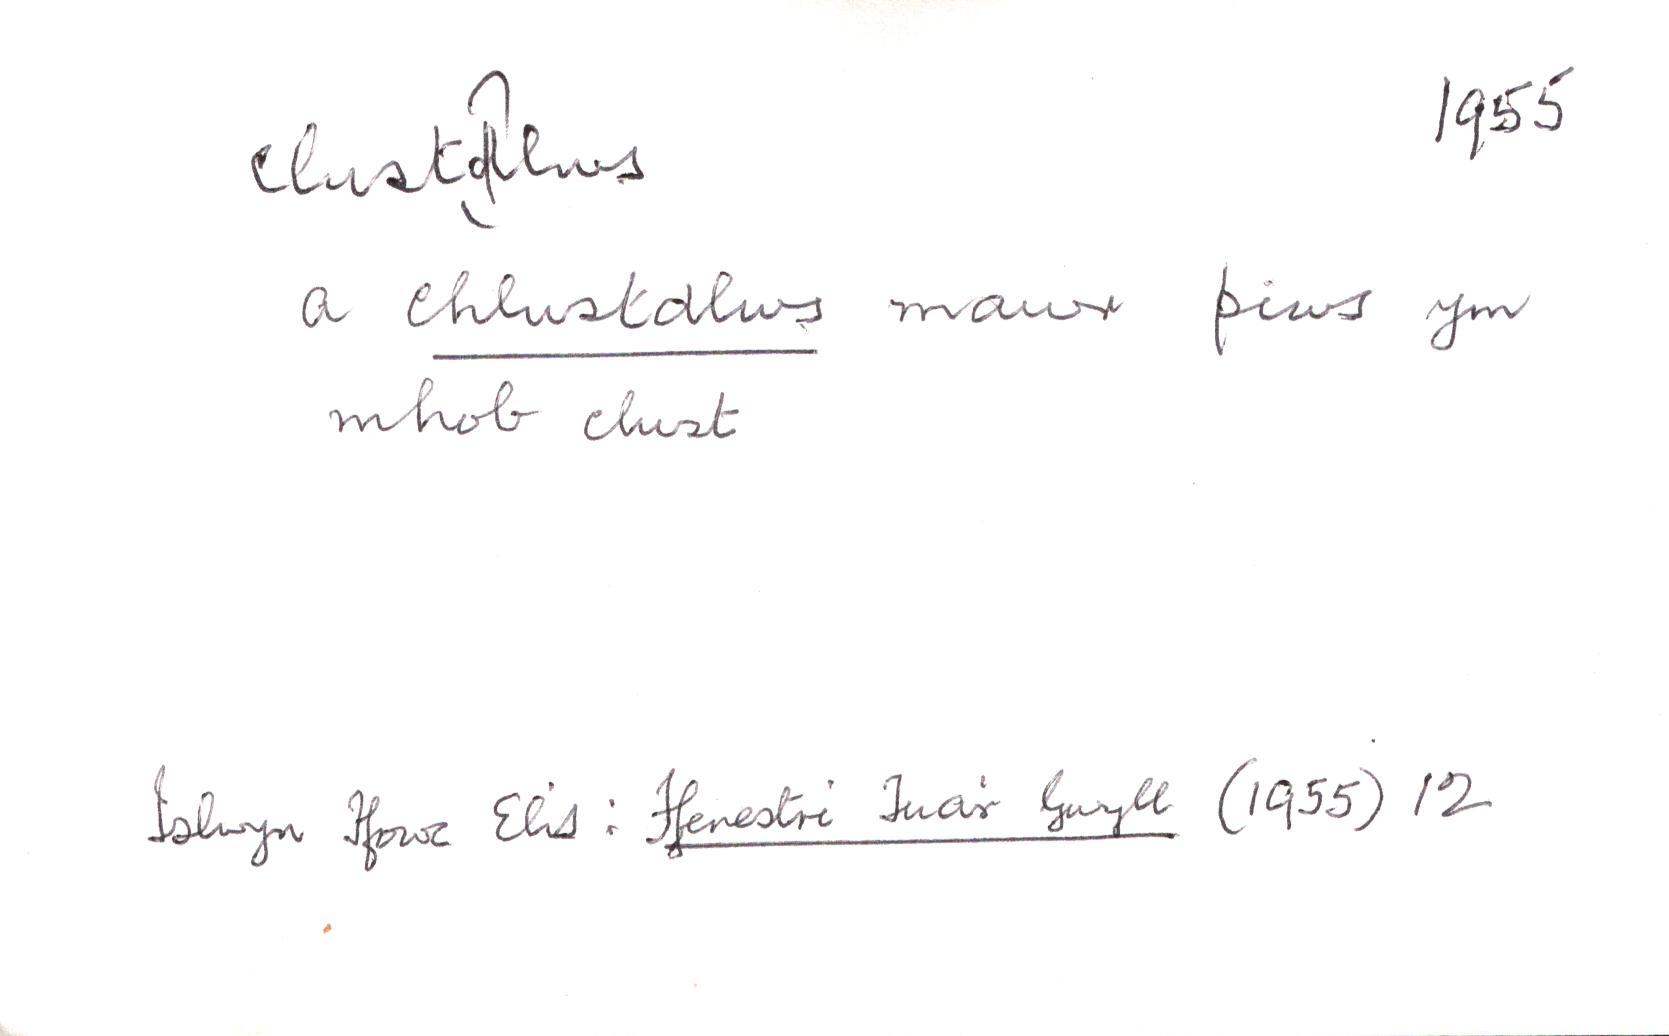 1955
clustdlws
a chlustdlws mawr piws ym
mhob clust
Islwyn Ffowc Elis : Ffenestri Tua'r Gwyll (1955) 12